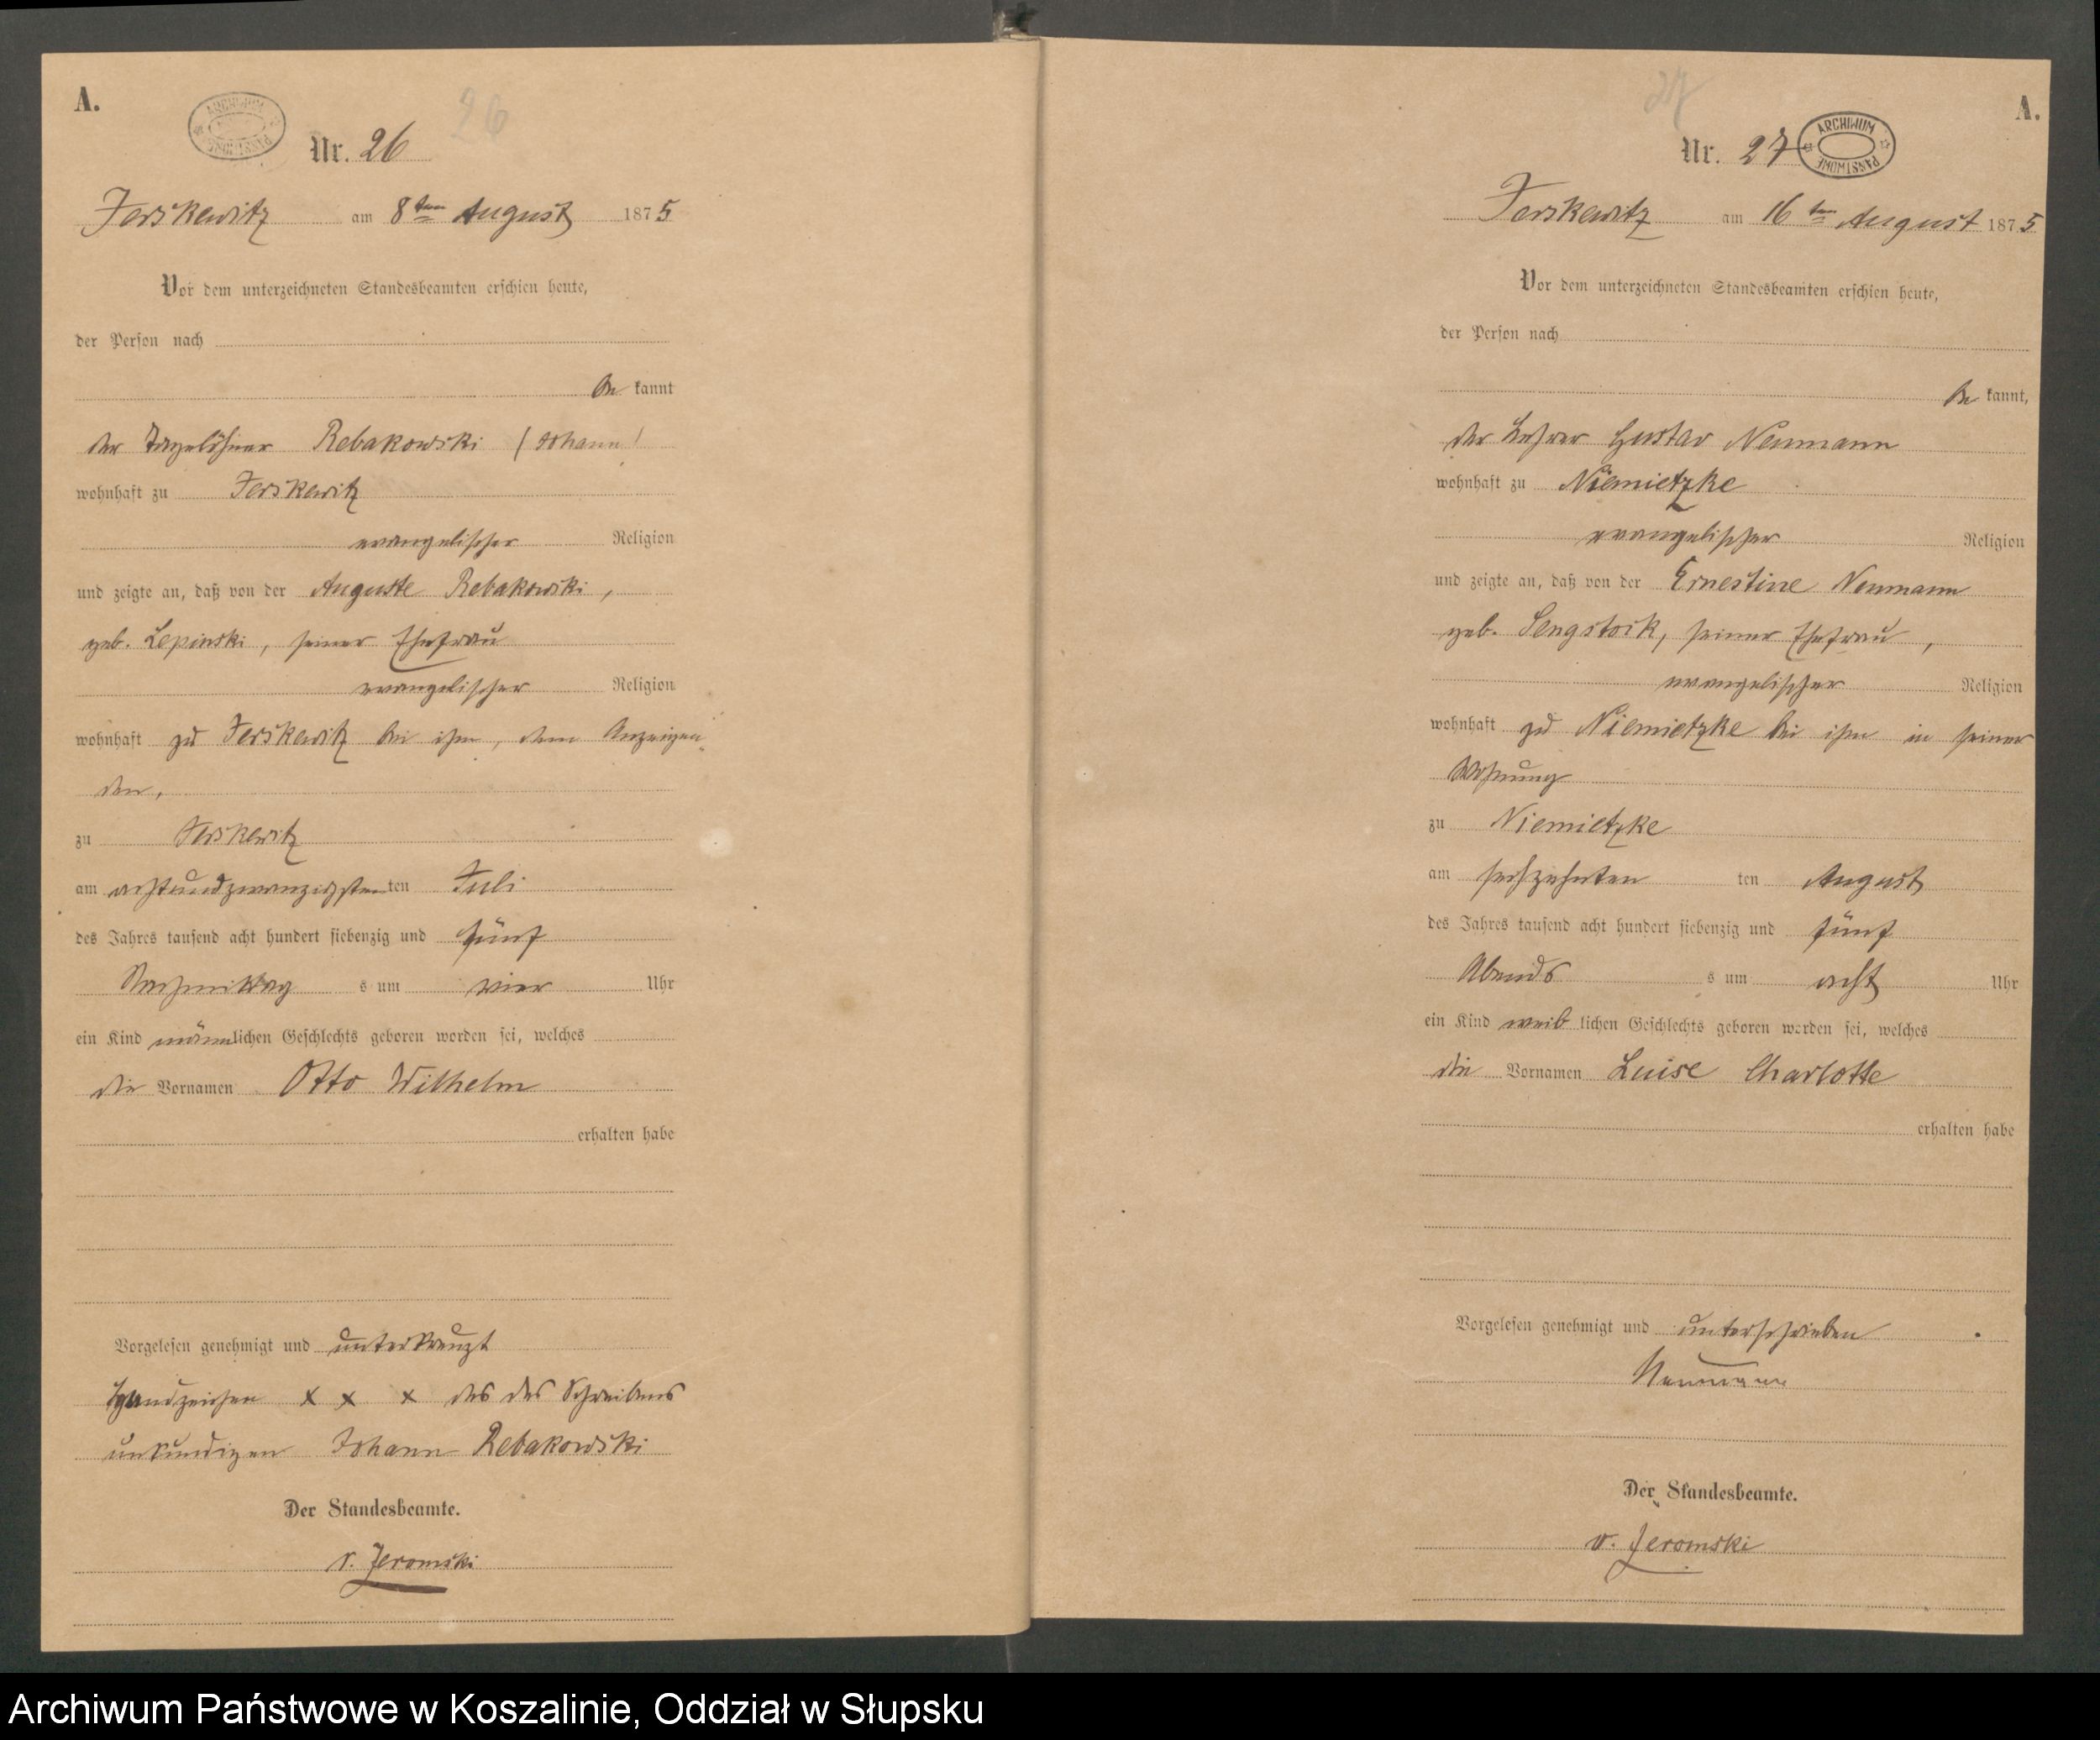 A.
ARCHIWUM PAŃSTWOWE
26
Nr. 26
Jerskewitz am 8ten August 1875
Vor dem unterzeichneten Standesbeamten erschien heute,
der Person nach
be kannt
der Tagelöhner Rebakowski (Johann)
wohnhaft zu Jerskewitz
evangelischer Religion
und zeigte an, daß von der Auguste Rebakowski,
geb. Lepinski, seiner Ehefrau
evangelischer Religion
wohnhaft zu Jerskewitz bei ihm, dem Anzeigen
den,
zu Jerskewitz
am achtundzwanzigsten ten Juli
des Jahres tausend acht hundert siebenzig und fünf
Nachmittag s um vier Uhr
ein Kind männlichen Geschlechts geboren worden sei, welches
die Vornamen Otto Wilhelm
erhalten habe
Vorgelesen genehmigt und unterkreuzt
Handzeichen x x x des des Schreibens
unkundigen Johann Rebakowski
Der Standesbeamte.
v. Jeromski
A.
27
Nr. 27
ARCHIWUM PAŃSTWOWE
Jerskewitz am 16ten August 1875
Vor dem unterzeichneten Standesbeamten erschien heute,
der Person nach
be kannt,
der Lehrer Gustav Neumann
wohnhaft zu Niemietzke
evangelischer Religion
und zeigte an, daß von der Ernestine Neumann
geb. Sengstock, seiner Ehefrau,
evangelischer Religion
wohnhaft zu Niemietzke bei ihm in seiner
Wohnung
zu Niemietzke
am sechszehnten ten August
des Jahres tausend acht hundert siebenzig und fünf
Abends s um acht Uhr
ein Kind weib lichen Geschlechts geboren worden sei, welches
die Vornamen Luise Charlotte
erhalten habe
Vorgelesen genehmigt und unterschrieben
Neumann
Der Standesbeamte.
v. Jeromski
Archiwum Państwowe w Koszalinie, Oddział w Słupsku